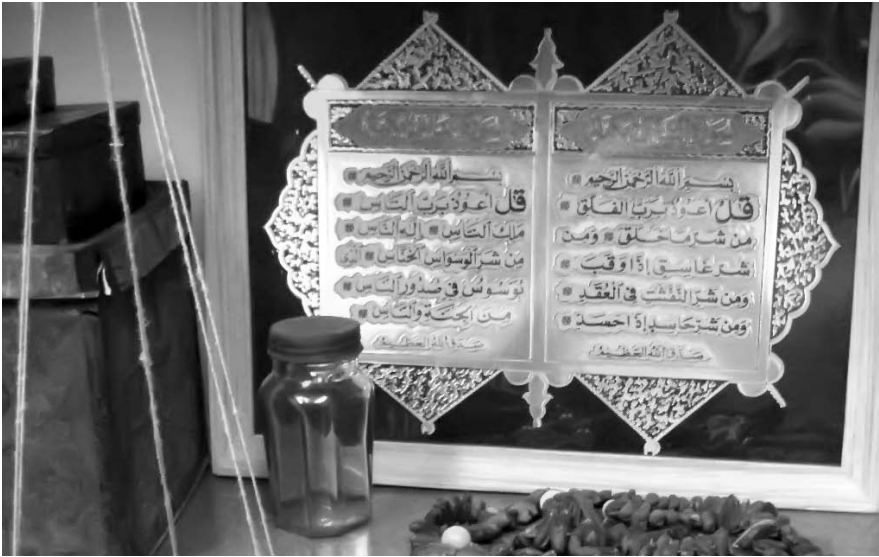 بسم الله الرحمن الرحيم
قل اعوذ برب الفلق
من شر ما خلق ومن
شر غاسق اذا وقب
ومن شر النفثت في العقد
ومن شر حاسد اذا حسد
صدق الله العظيم
بسم الله الرحمن الرحيم
قل اعوذ برب الناس
ملك الناس اله الناس
من شر الوسواس الخناس الذي
يوسوس في صدور الناس
من الجنة والناس
صدق الله العظيم